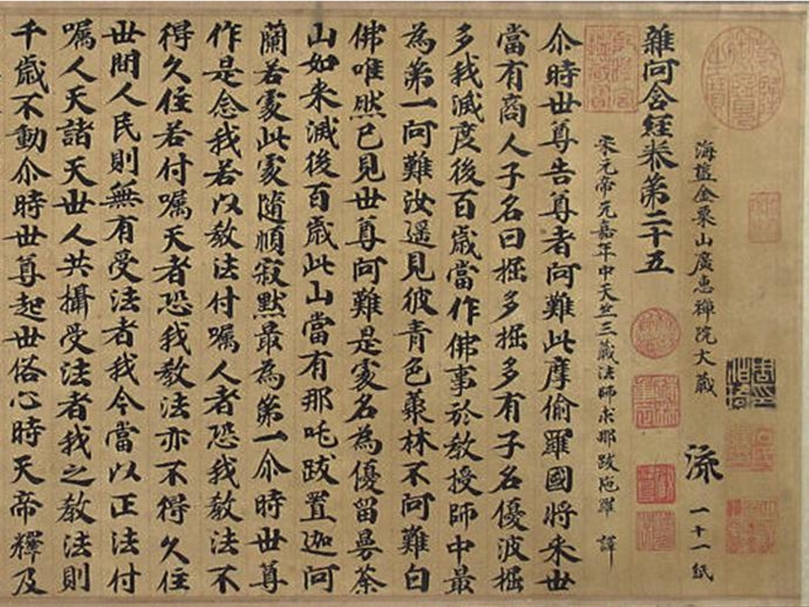 海鹽金粟山廣惠禪院大藏 流 一十一紙
雜阿含經卷第二十五
宋元帝元嘉年中天竺三藏法師求那跋陁羅 譯
尒時世尊告尊者阿難此摩偷羅國將来世
當有商人子名曰掘多掘多有子名優波掘
多我滅度後百歲當作佛事於教授師中最
為第一阿難汝遥見彼青色叢林不阿難白
佛唯然已見世尊阿難是處名為優留曼荼
山如来滅後百歲此山當有那吒跋置迦阿
蘭若處此處隨順寂默最為第一尒時世尊
作是念我若以教法付囑人者恐我教法不
得久住若付囑天者恐我教法亦不得久住
世間人民則無有受法者我今當以正法付
囑人天諸天世人共攝受法者我之教法則
千歲不動尒時世尊起世俗心時天帝釋及